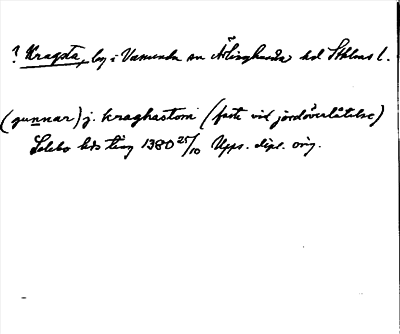 ? Kragsta, by i Vamunda sn Ärlinghundra hd Sthlms l.
(gunnar) j. kraghastom (faste vid jordöverlåtelse)
Selebo hds ting 1380 25/10 Upps. dipl. orig.